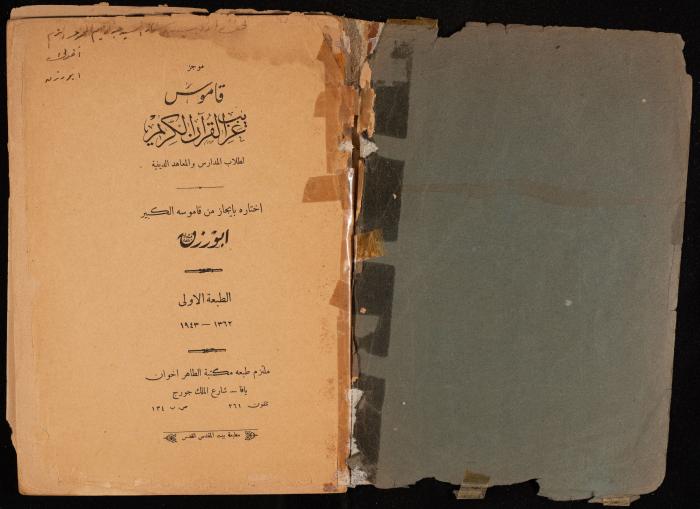 موجز
قاموس
غريب القرآن الكريم
لطلاب المدارس والمعاهد الدينية
اختاره بايجاز من قاموسه الكبير
ابورزق
الطبعة الاولى
١٣٦٢ — ١٩٤٣
ملتزم طبعه مكتبة الطاهر اخوان
يافا — شارع الملك جورج
تلفون ٢٦١ ص ب ١٣٤
مطبعة بيت المقدس القدس